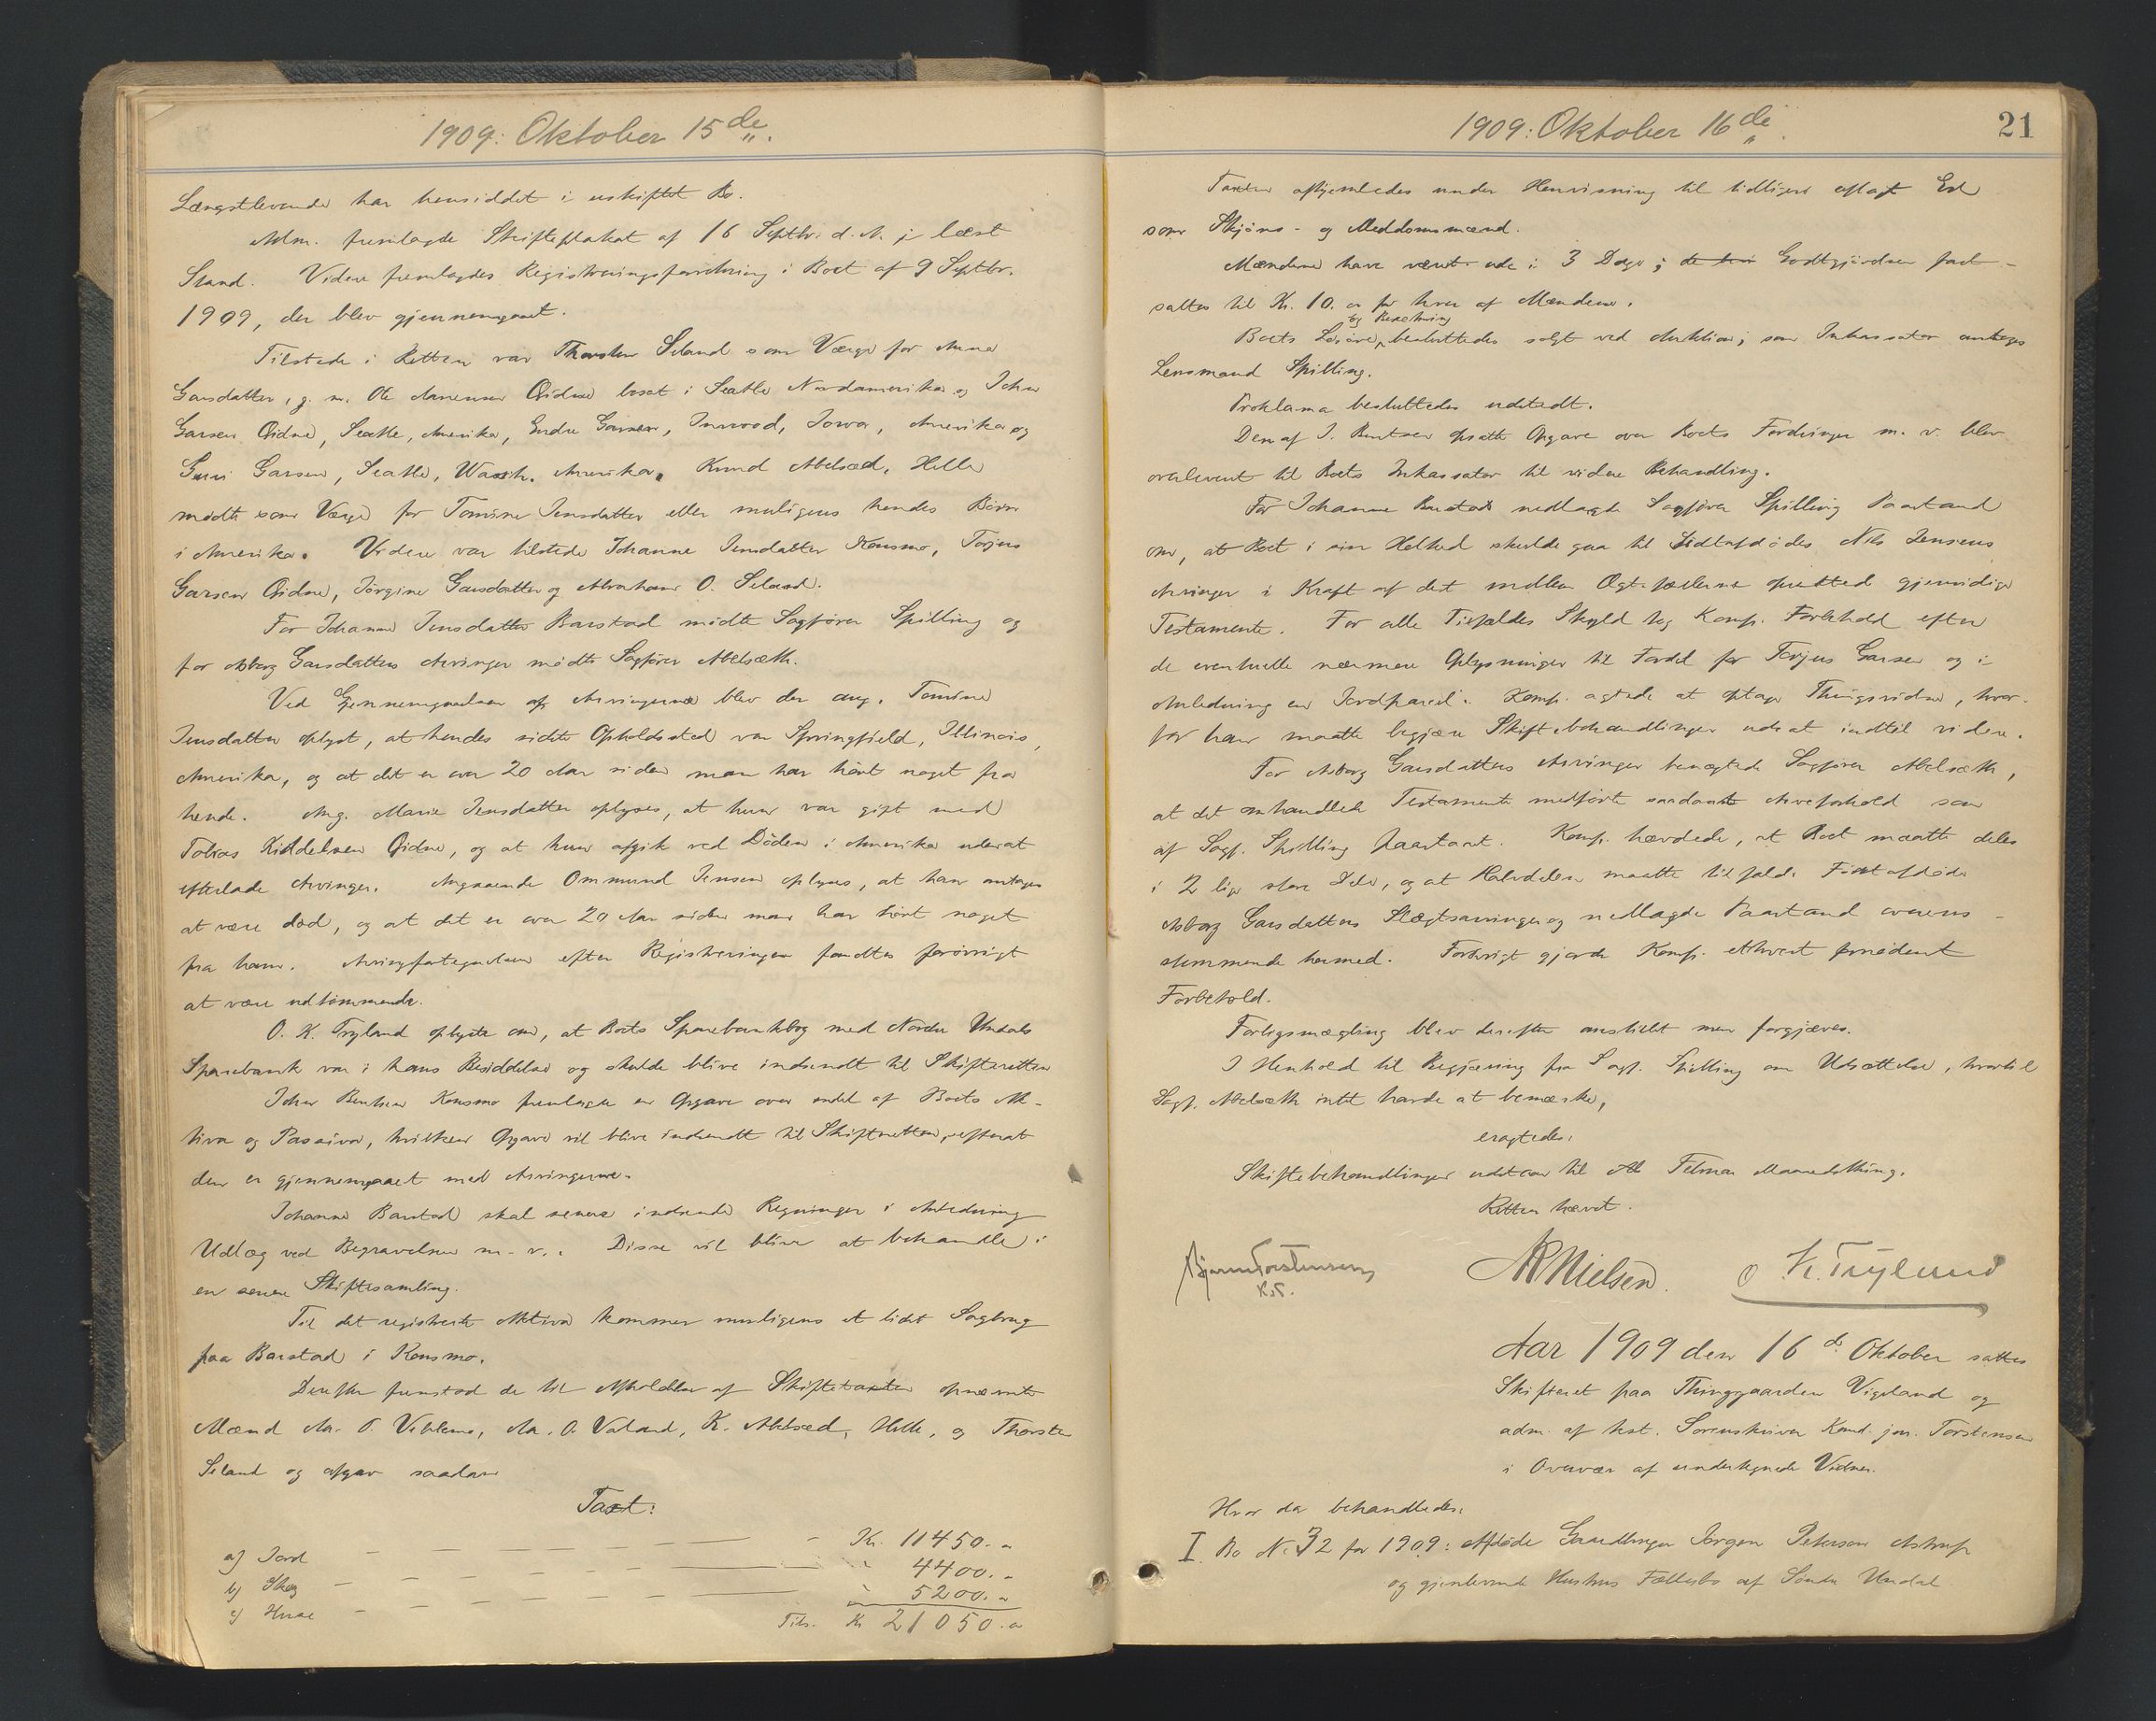 1909: Oktober 15de.
Længstlevende har hensiddet i uskiftet Bo.
Adm. fremlagde Skifteplakat af 16 Septbr. d. A. i læst
Stand. Videre fremlagdes Registreringsforretning i Boet af 9 Septbr.
1909, der blev gjennemgaaet.
Tilstede i Retten var Thorsten Seland som Værge for Anna
Garsdatter, g. m. Ole Asmensen Qidne bosat i Seatle Nordamerika og John
Garsen Qidne, Seatle, Amerika, Endre Garsen, Inwood, Iowa, Amerika og
Guri Garsen, Seatle, Wash. Amerika. Knud Abelsæd, Helle
mødte som Værge for Tomine Jensdatter eller muligens hendes Børn
i Amerika. Videre var tilstede Johanne Jensdatter Konsmo, Torjus
Garsen Qidne, Jørgine Garsdatter og Abraham O. Seland.
For Johanne Jensdatter Barstad mødte Sagfører Spilling og
for Asborg Garsdatters Arvinger mødte Sagfører Abelsæth.
Ved Gjennemgaaelsen af Arvingerne blev der ang. Tomine
Jensdatter oplyst, at hendes sidste Opholdssted var Springfield, Illinois,
Amerika, og at det er over 20 Aar siden man har hørt noget fra
hende. Ang. Marie Jensdatter oplyses, at hun var gift med
Tobias Kiddelsen Qidne, og at hun afgik ved Døden i Amerika uden at
efterlade Arvinger. Angaaende Ommund Jensen oplyses, at han antages
at være død, og at det er over 20 Aar siden man har hørt noget
fra ham. Arvingfortegnelsen efter Registreringen fandtes forøvrigt
at være udtømmende.
O. K. Tryland oplyste om, at Boets Sparebankbog med Nordre Undals
Sparebank var i hans Besiddelse og skulde blive indsendt til Skifteretten
John Bentsen Konsmo fremlagde en Opgave over endel af Boets Ak-
tiva og Passiva, hvilken Opgave vil blive indsendt til Skifteretten, efterat
den er gjennemgaaet med Arvingerne.
Johanne Barstad skal senere indsende Regninger i Anledning
Udlæg ved Begravelsen m. v.. Disse vil blive at behandle i
en senere Skiftesamling.
Til det registrerte Aktiva kommer muligens et lidet Sagbrug
paa Barstad i Konsmo.
Derefter fremstod de til Afholdelse af Skiftetaxten opnævnte
Mænd Aa. T. Vehlemo, Aa. O. Valand, K. Abelsæd, Helle, og Thorsten
Seland og afgav saadan
Taxt:
a) Jord — — — — Kr. 11450.-
b) Skog — — — — " 4400.-
c) Huse — — — — " 5200.-
Tils. Kr. 21050.-
1909: Oktober 16de.
21
Taxten afhjemledes under Henvisning til tidligere aflagt Ed
som Skjøns- og Meddomsmænd.
Mændene have været ude i 3 Dage; Godtgjørelsen fast-
sattes til Kr. 10.- for hver af Mændene.
og Besætning
Boets Løsøre, besluttedes solgt ved Auktion; som Inkassator antages
Lensmand Spilling.
Proklama besluttedes udstedt.
Den af J. Bentsen opsatte Opgave over Boets Fordringer m. v. blev
overleveret til Boets Inkassator til videre Behandling.
For Johanne Barstad nedlagde Sagfører Spilling Paastand
om, at Boet i sin Helhed skulde gaa til Sidstafdødes Nils Jensens
Arvinger i Kraft af det mellem Ægtefællerne oprettede gjensidige
Testamente. For alle Tilfældes Skyld tog Komp. Forbehold efter
de eventuelle nærmere Oplysninger til Fordel for Torjus Garsen og i
Anledning en Jordparcel. Komp. agtede at optage Thingsvidne, hvor-
for han maatte begjære Skiftebehandlingen udsat indtil videre.
For Asborg Garsdatters Arvinger benægtede Sagfører Abelsæth,
at det omhandlede Testamente medførte saadant Arveforhold som
af Sagf. Spilling paastaat. Komp. hævdede, at Boet maatte deles
i 2 lige store Dele, og at Halvdelen maatte tilfalde Førstafdøde
Asborg Garsdatters Slægtsarvinger og nedlagde Paastand overens-
stemmende hermed. Forøvrigt gjorde Komp. ethvert fornødent
Forbehold.
Forligsmægling blev derefter anstillet men forgjæves.
I Henhold til Begjæring fra Sagf. Spilling om Udsættelse, hvortil
Sagf. Abelsæth intet havde at bemærke,
eragtedes:
Skiftebehandlingen udstaar til Februar Maanedsthing.
Retten hævet.
Bjarne Torstensen
K.S.
AR Nielsen.
O K. Trylund
Aar 1909 den 16de Oktober sattes
Skifteret paa Thinggaarden Vigeland og
adm. af kst. Sorenskriver Kand. jur. Torstensen
i Overvær af undertegnede Vidner.
Hvor da behandledes:
I. Bo No. 32 for 1909: Afdøde Gaardbruger Jørgen Petersen Astrup
og gjenlevende Hustrus Fællesbo af Søndre Undal